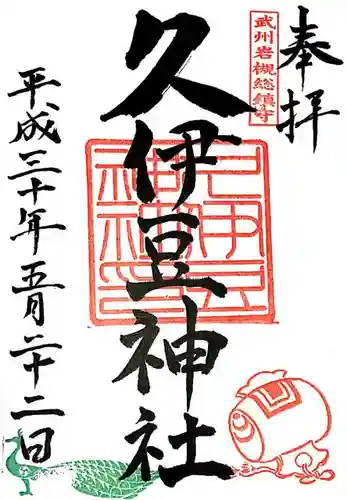 奉拝
武州岩槻総鎮守
久伊豆神社
久伊豆神社印
平成三十年五月二十二日